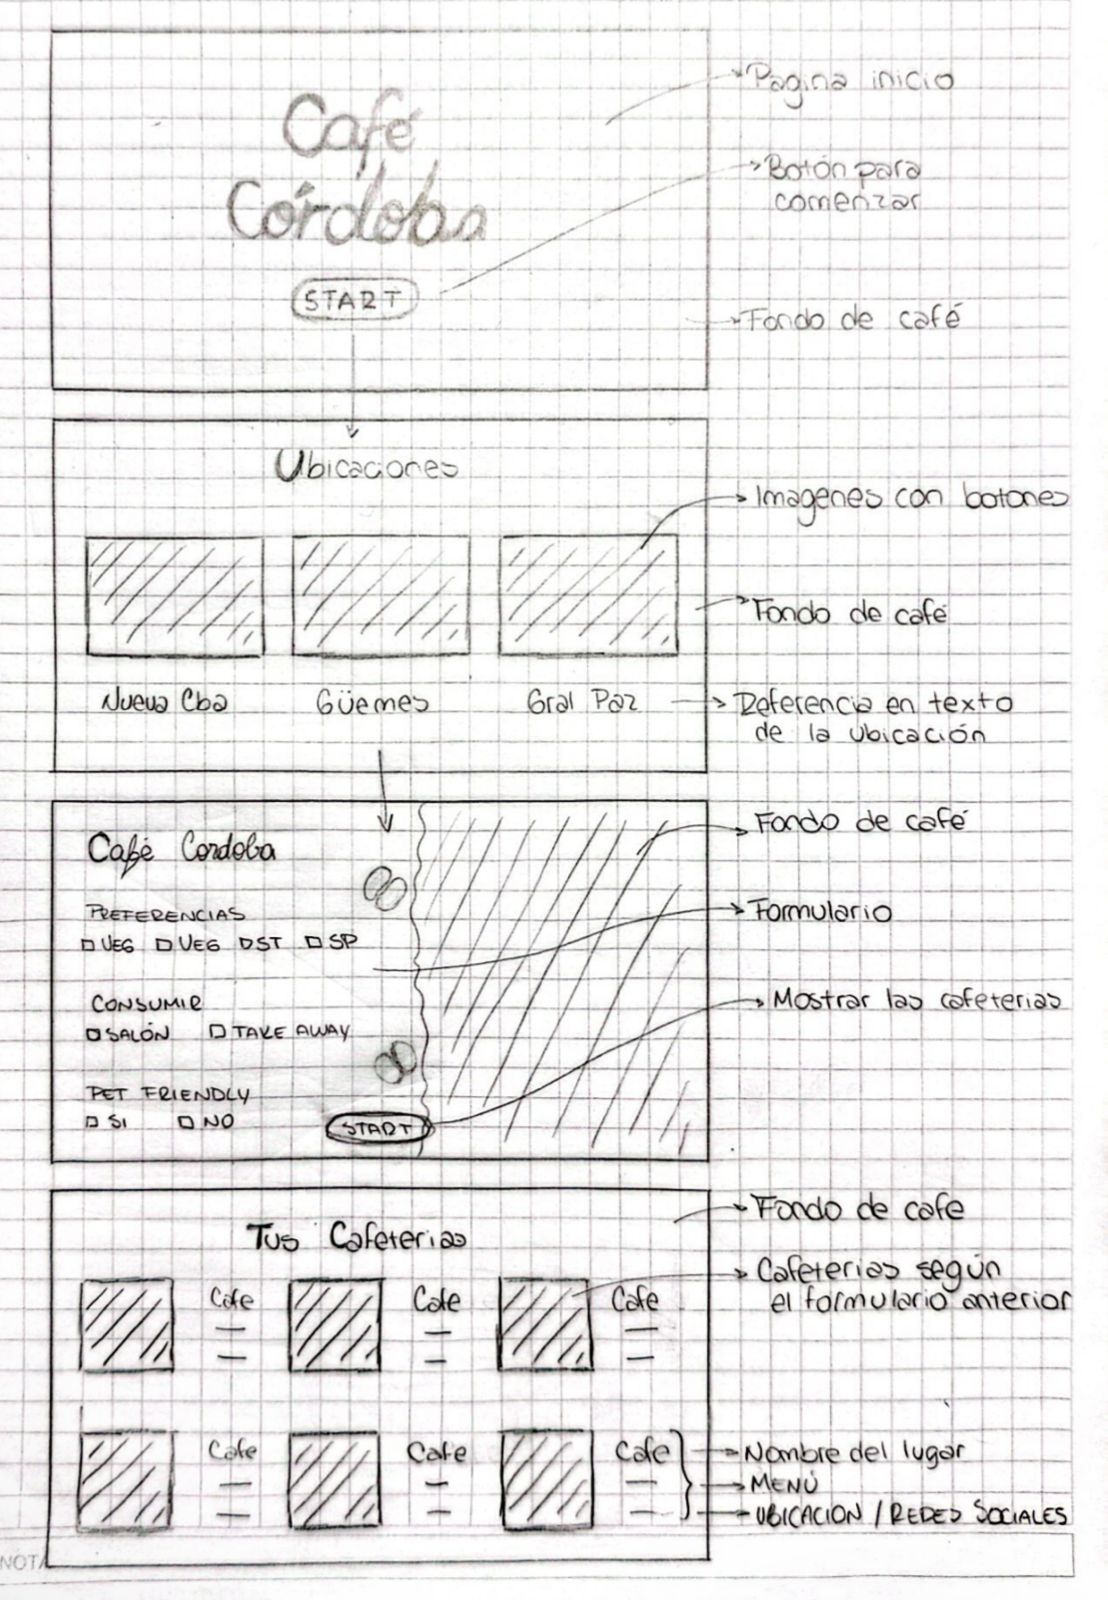 Café
Córdoba
START
Pagina inicio
Botón para
comenzar
Fondo de café
Ubicaciones
Imagenes con botones
Fondo de café
Nueva Cba
Güemes
Gral Paz
Referencia en texto
de la ubicación
Café Cordoba
PREFERENCIAS
VEG VEG ST SP
CONSUMIR
SALÓN TAKE AWAY
PET FRIENDLY
SI NO
START
Fondo de café
Formulario
Mostrar las cafeterias
Tus Cafeterias
Cafe
Cafe
Cafe
Cafe
Cafe
Cafe
Fondo de cafe
Cafeterias según
el formulario anterior
Nombre del lugar
MENÚ
UBICACION / REDES SOCIALES
NOTA